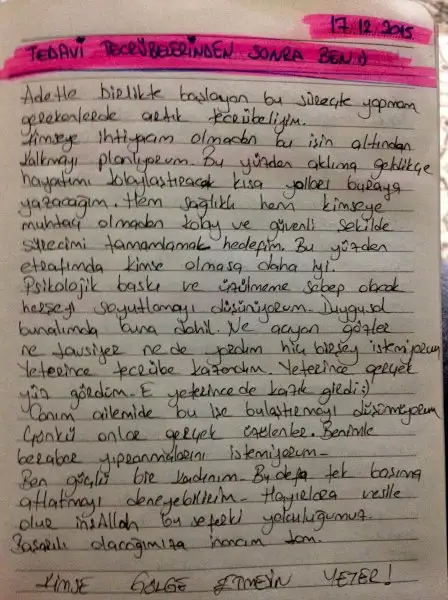 17.12.2015
TEDAVİ TECRÜBELERİNDEN SONRA BEN :)
Adetle birlikte başlayan bu süreçte yapmam
gerekenlerde artık tecrübeliyim.
Kimseye ihtiyacım olmadan bu işin altından
kalkmayı planlıyorum. Bu yüzden aklıma geldikçe
hayatımı kolaylaştıracak kısa yolları buraya
yazacağım. Hem sağlıklı hem kimseye
muhtaç olmadan kolay ve güvenli şekilde
sürecimi tamamlamak hedefim. Bu yüzden
etrafımda kimse olmasa daha iyi.
Psikolojik baskı ve üzülmeme sebep olacak
herşeyi soyutlamayı düşünüyorum. Duygusal
bunalımda buna dahil. Ne acıyan gözler
ne tavsiyeler ne de yardım hiç birşey istemiyorum
Yeterince tecrübe kazandım. Yeterince gerçek
yüz gördüm. E yeterince de kazık girdi :)
Canım ailemide bu işe bulaştırmayı düşünmüyorum
Çünkü onlar gerçek üzülenler. Benimle
beraber yıpranmalarını istemiyorum.
Ben güçlü bir kadınım. Bu defa tek başıma
atlatmayı deneyebilirim. Hayırlara vesile
olur inşAllah bu seferki yolculuğumuz.
Başarılı olacağımıza inancım tam.
KİMSE GÖLGE ETMEİN YETER!